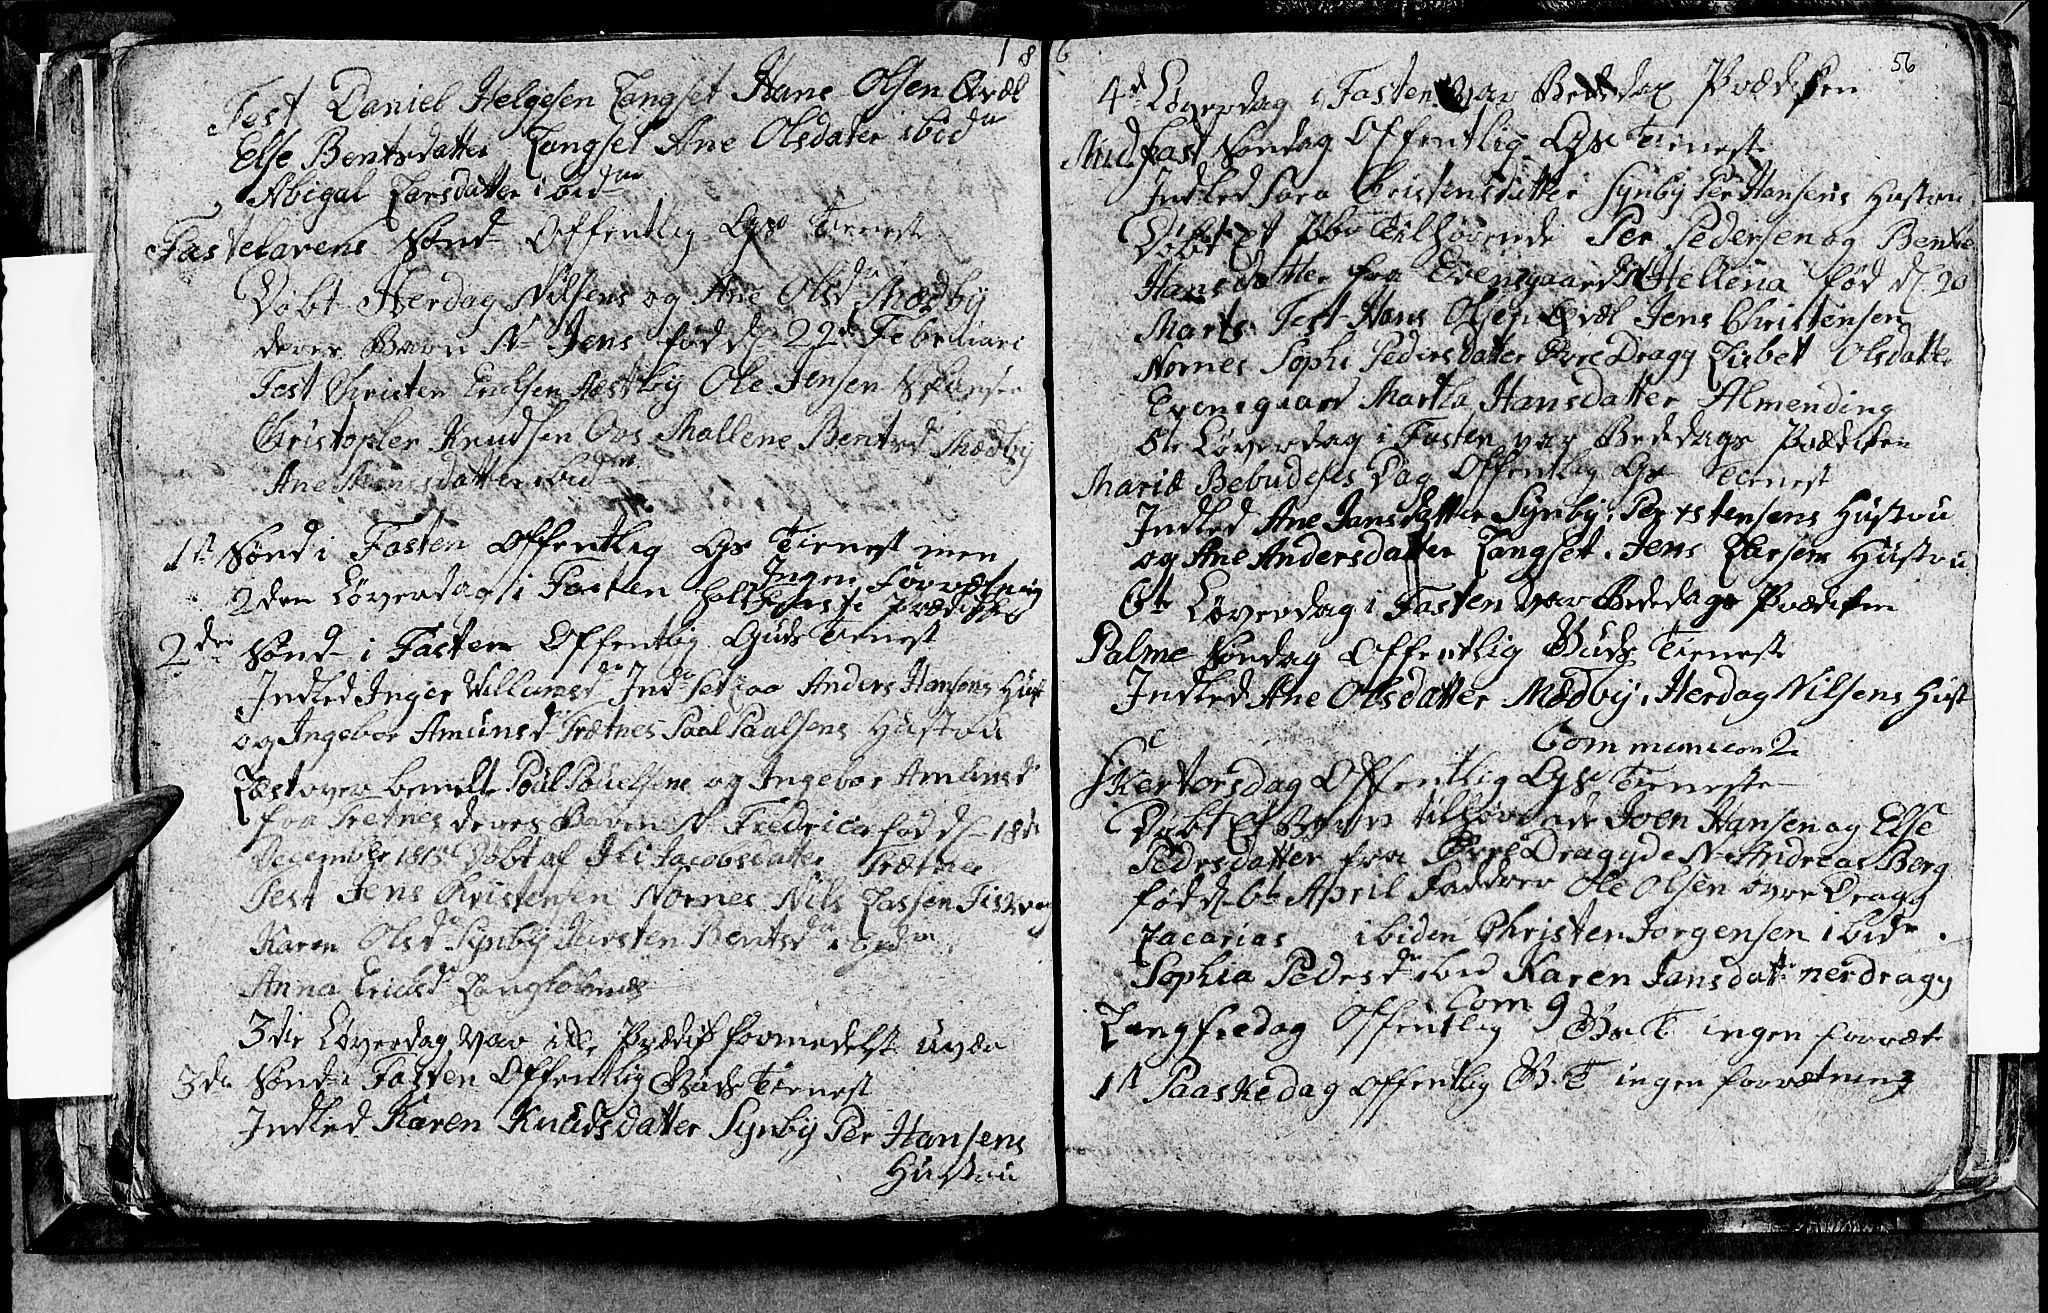 18
Test Daniel Helgesen Langset Hans Olsen Qvæl
Else Bentsdatter Langset Ane Olsdater ibid
Abigal Larsdatter ibid
Fastelavens Sønd Offentlig Gs Tieneste
Døbt Herdag Nilsens og Ane Olsd Mædby
deres Barn N Jens fød d 22d Februari
Test Christen Aastby Ole Jensen
Christopher Knudsen Mallene Bentsd Mædby
Ane datter ibid
1st Sønd i Fasten Offentlig Gs Tienest men
Ingen Forretning
2den Løverdag i Fasten holt Præd
2den Sønd i Fasten Offentlig Guds Tienest
Indled Inger Willumsd Anders Hansens Hust
og Ingebor Amunsd Trætnes Paal Paalsens Hustru
Læst over bemelte Poul Pouelsens og Ingebor Amunsd
fra Tretnes deres Barn N Fredrica fød d 18de
December 1815 Døbt af Jacobsdatter Trætnes
Test Jens Kristensen Nornes Nils Lassen
Karen Olsd Synby Kirsten Bentsd ibid
Anna Ericksd
3die Løverdag var ikke Prædik formedelst uvær
3de Sønd i Fasten Offentlig Guds Tienest
Indled Karen Knudsdatter Synby Per Hansens
Hustru
6
56
4d Løverdag i Fasten var Bededags Prædiken
Midfast Søndag Offentlig Gs Tieneste
Indled Sara Christensdatter Synby Per Hansens Hustru
Døbt Et Tilhørende Per Pedersen og
Hansdatter fra Evensgaard N Hellena fød d 20
Marts Test Hans Olsen Qvæl Jens Christensen
Nornes Sophi Pedersdatter Øvre Dragy Lisbet Olsdatter
Evensgaard Martha Hansdatter Almending
5te Løverdag i Fasten var Bededags Prædiken
Mariæ Bebudelses Dag Offentlig Gs Tienest
Indled Ane Jansdatter Synby Hustru
og Ane Andersdatter Langset Jens Larsens Hustru
6te Løverdag i Fasten var Bededags Prædiken
Palme Søndag Offentlig Guds Tieneste
Indled Ane Olsdatter Mædby Herdag Nilsens Hust
Communicon 2
Skertorsdag Offentlig Gs Tieneste
Døbt Et Barn tilhørende Joen Hansen og Else
Pedersdatter fra Øvre Dragy de N Andreas Berg
fød d 6te April Faddere Ole Olsen øvre Dragy
Zacarias ibiden Christen Jorgensen ibid
Sophia Pedersd ibid Karen Jansdat nerdragy
Com 9
Langfredag Offentlig G T ingen forræt
1st Paaskedag Offentlig G. T ingen forrætning